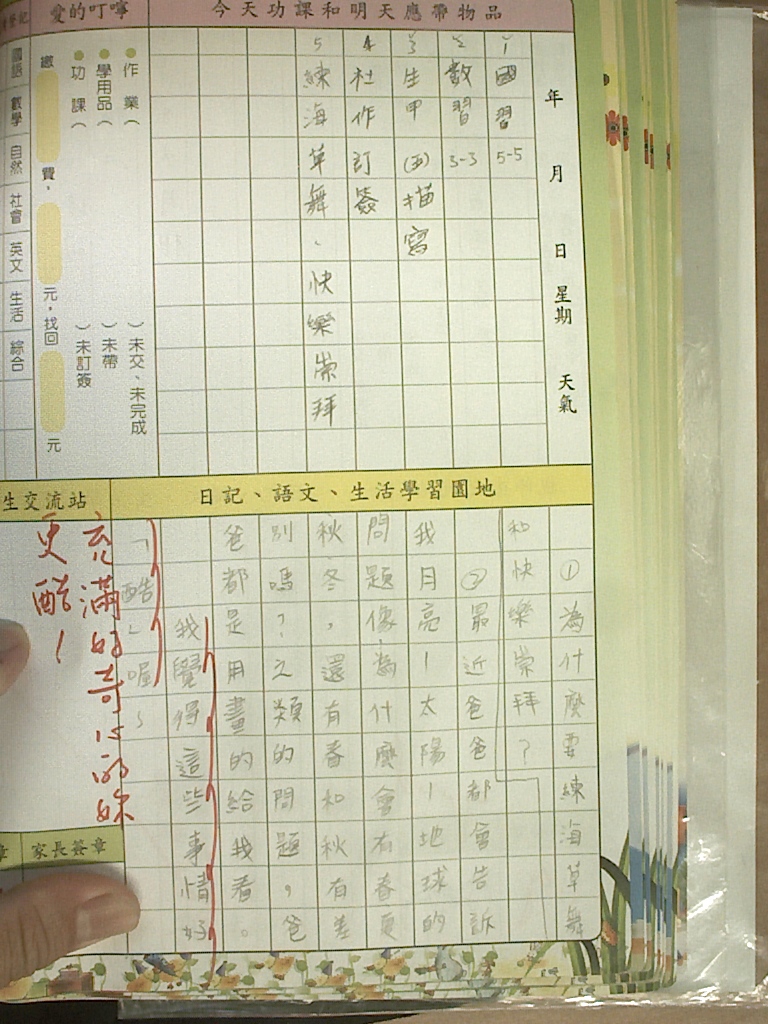 今天功課和明天應帶物品
年 月 日 星期 天氣
1 國習 5-5
2 數習 3-3
3 生甲(五)描寫
4 社作訂簽
5 練海草舞、快樂崇拜
愛的叮嚀
作業( )未交、未完成
學用品( )未帶
功課( )未訂簽
繳 費，元，找回 元
國語 數學 自然 社會 英文 生活 綜合
日記、語文、生活學習園地
①為什麼要練海草舞
和快樂崇拜?
②最近爸爸都會告訴
我月亮—太陽—地球的
問題像為什麼會有春夏
秋冬,還有春和秋有差
別嗎?之類的問題,爸
爸都是用畫的給我看。
我覺得這些事情好
「酷」喔~
生交流站
充滿好奇心的妳
更酷!
章 家長簽章